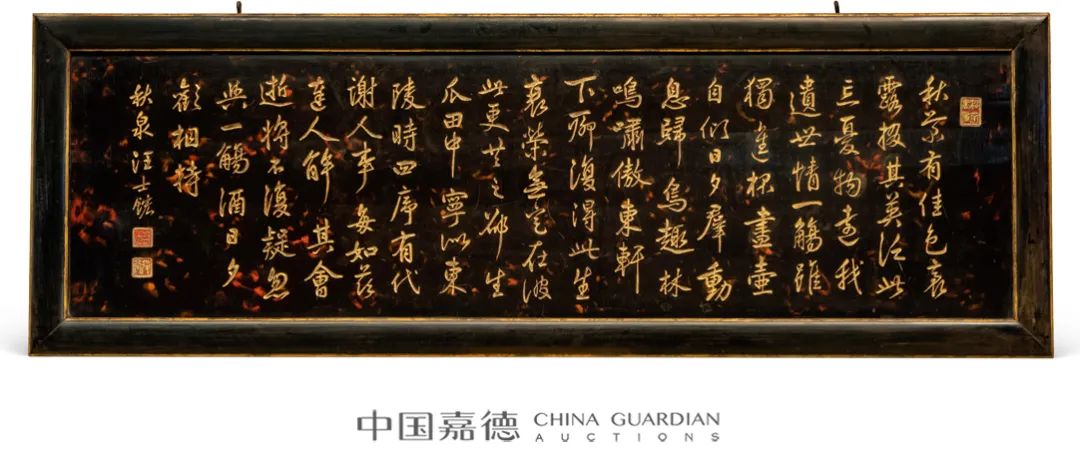 秋菊有佳色裛
露掇其英汎此
忘憂物遠我
遺世情一觴雖
獨進杯盡壺
自傾日夕羣動
息歸鳥趨林
鳴嘯傲東軒
下聊復得此生
衰榮無定在彼
此更共之邵生
瓜田中寧似東
陵時四序有代
謝人事每如茲
達人解其會
逝將不復疑忽
與一觴酒日夕
歡相持
秋泉汪士鋐
中国嘉德 CHINA GUARDIAN
AUCTIONS